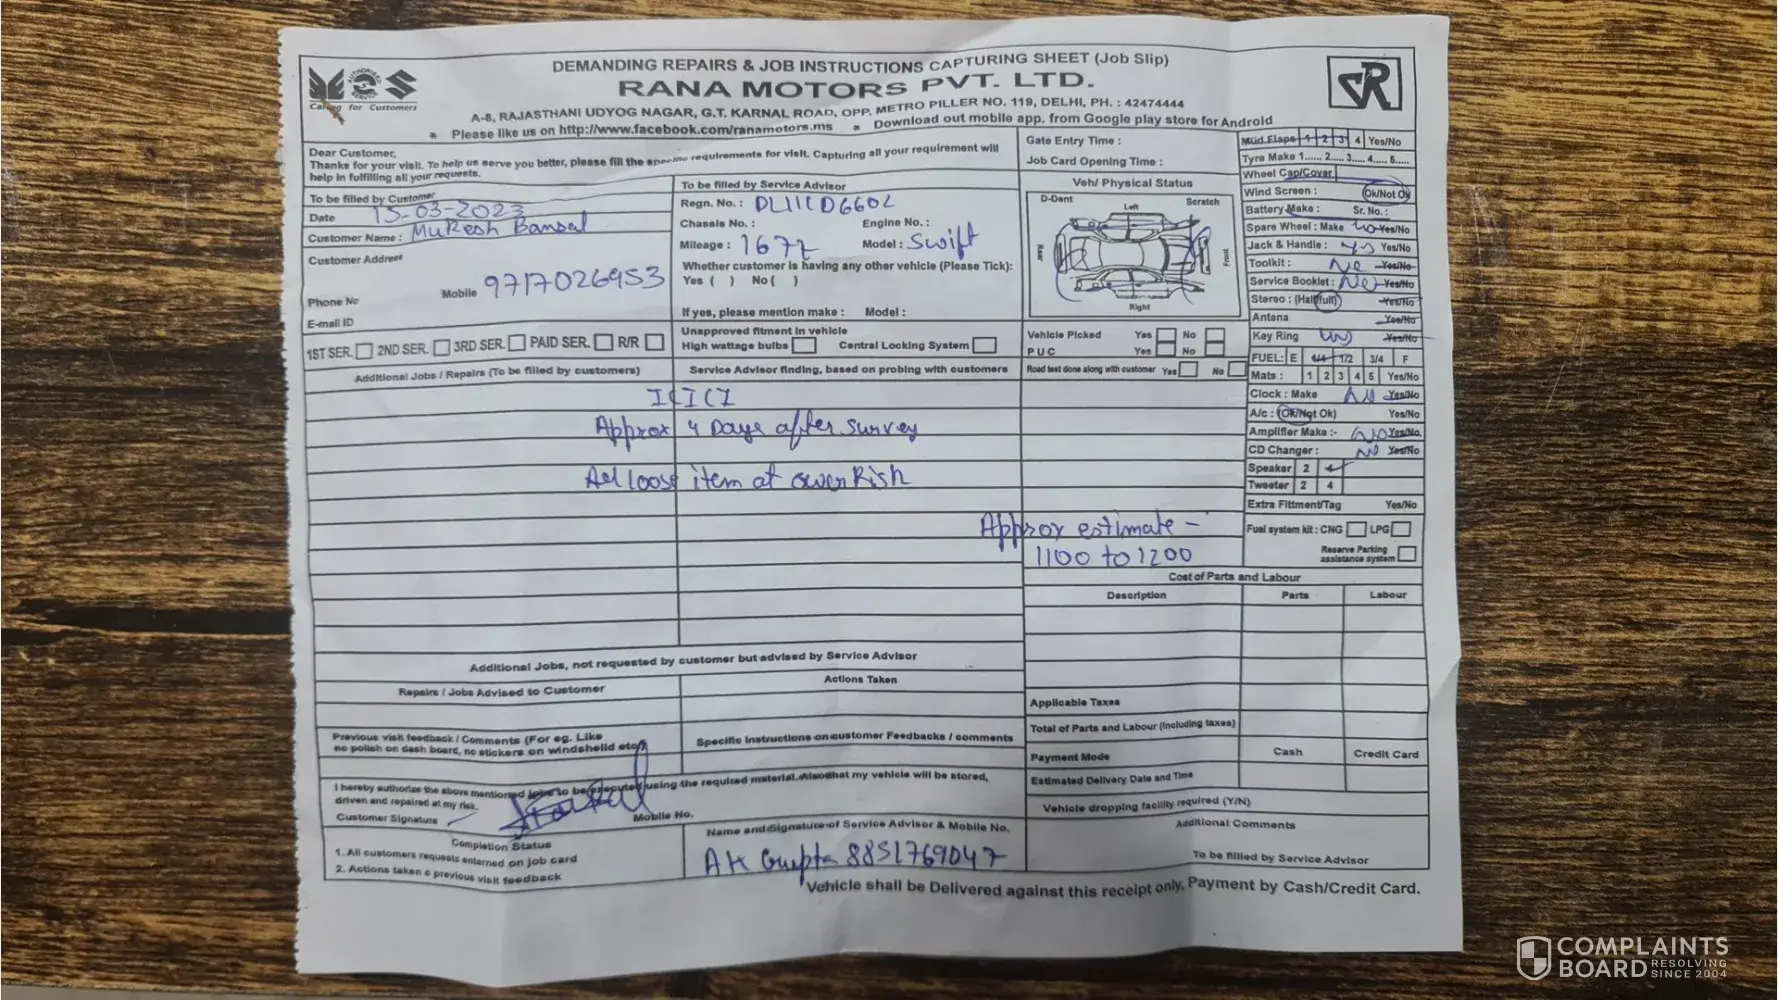 DEMANDING REPAIRS & JOB INSTRUCTIONS CAPTURING SHEET (Job Slip)
RANA MOTORS PVT. LTD.
A-8, RAJASTHANI UDYOG NAGAR, G.T. KARNAL ROAD, OPP. METRO PILLER NO. 119, DELHI, PH. : 42474444
* Please like us on http://www.facebook.com/ranamotors.ms * Download out mobile app. from Google play store for Android
AUTHORISED SERVICE
Caring for Customers
SR
Dear Customer,
Thanks for your visit. To help us serve you better, please fill the specific requirements for visit. Capturing all your requirement will
help in fulfilling all your requests.
To be filled by Customer
Date 15-03-2023
Customer Name : Mukesh Bansal
Customer Address
Mobile 9717026953
Phone No
E-mail ID
To be filled by Service Advisor
Regn. No. : DL11CD6602
Chassis No. : Engine No. :
Mileage : 1677 Model : Swift
Whether customer is having any other vehicle (Please Tick):
Yes ( ) No ( )
If yes, please mention make : Model :
Gate Entry Time :
Job Card Opening Time :
Veh/ Physical Status
D-Dent Left Scratch
Rear Front
Right
Mud Flaps 1 2 3 4 Yes/No
Tyre Make 1...... 2...... 3..... 4..... 5.....
Wheel Cap/Cover
Wind Screen : Ok/Not Ok
Battery Make : Sr. No. :
Spare Wheel : Make No Yes/No
Jack & Handle : Yes Yes/No
Toolkit : No Yes/No
Service Booklet : No Yes/No
Stereo : (Half/full) Yes/No
Antena Yes/No
Key Ring Yes/No
FUEL: E 1/4 1/2 3/4 F
Mats : 1 2 3 4 5 Yes/No
Clock : Make No Yes/No
A/c : (Ok/Not Ok) Yes/No
Amplifier Make :- No Yes/No
CD Changer : No Yes/No
Speaker 2 4
Tweeter 2 4
Extra Fittment/Tag Yes/No
Fuel system kit : CNG LPG
Reserve Parking
assistance system
1ST SER. 2ND SER. 3RD SER. PAID SER. R/R
Unapproved fitment in vehicle
High wattage bulbs Central Locking System
Vehicle Picked Yes No
P U C Yes No
Additional Jobs / Repairs (To be filled by customers)
Service Advisor finding, based on probing with customers
Road test done along with customer Yes No
ICICI
Approx 4 Days after survey
All loose item at owner Risk
Approx estimate -
1100 to 1200
Cost of Parts and Labour
Description Parts Labour
Applicable Taxes
Total of Parts and Labour (Including taxes)
Payment Mode Cash Credit Card
Estimated Delivery Date and Time
Vehicle dropping facility required (Y/N)
Additional Comments
To be filled by Service Advisor
Additional Jobs, not requested by customer but advised by Service Advisor
Repairs / Jobs Advised to Customer
Actions Taken
Previous visit feedback / Comments (For eg. Like
no polish on dash board, no stickers on windshelid etc)
Specific Instructions on customer Feedbacks / comments
I hereby authorize the above mentioned jobs to be executed using the required material. Also that my vehicle will be stored,
driven and repaired at my risk.
Customer Signature Mobile No.
Completion Status
1. All customers requests enterned on job card
2. Actions taken o previous visit feedback
Name and Signature of Service Advisor & Mobile No.
AK Gupta 8851769047
Vehicle shall be Delivered against this receipt only, Payment by Cash/Credit Card.
COMPLAINTS
BOARD RESOLVING
SINCE 2004